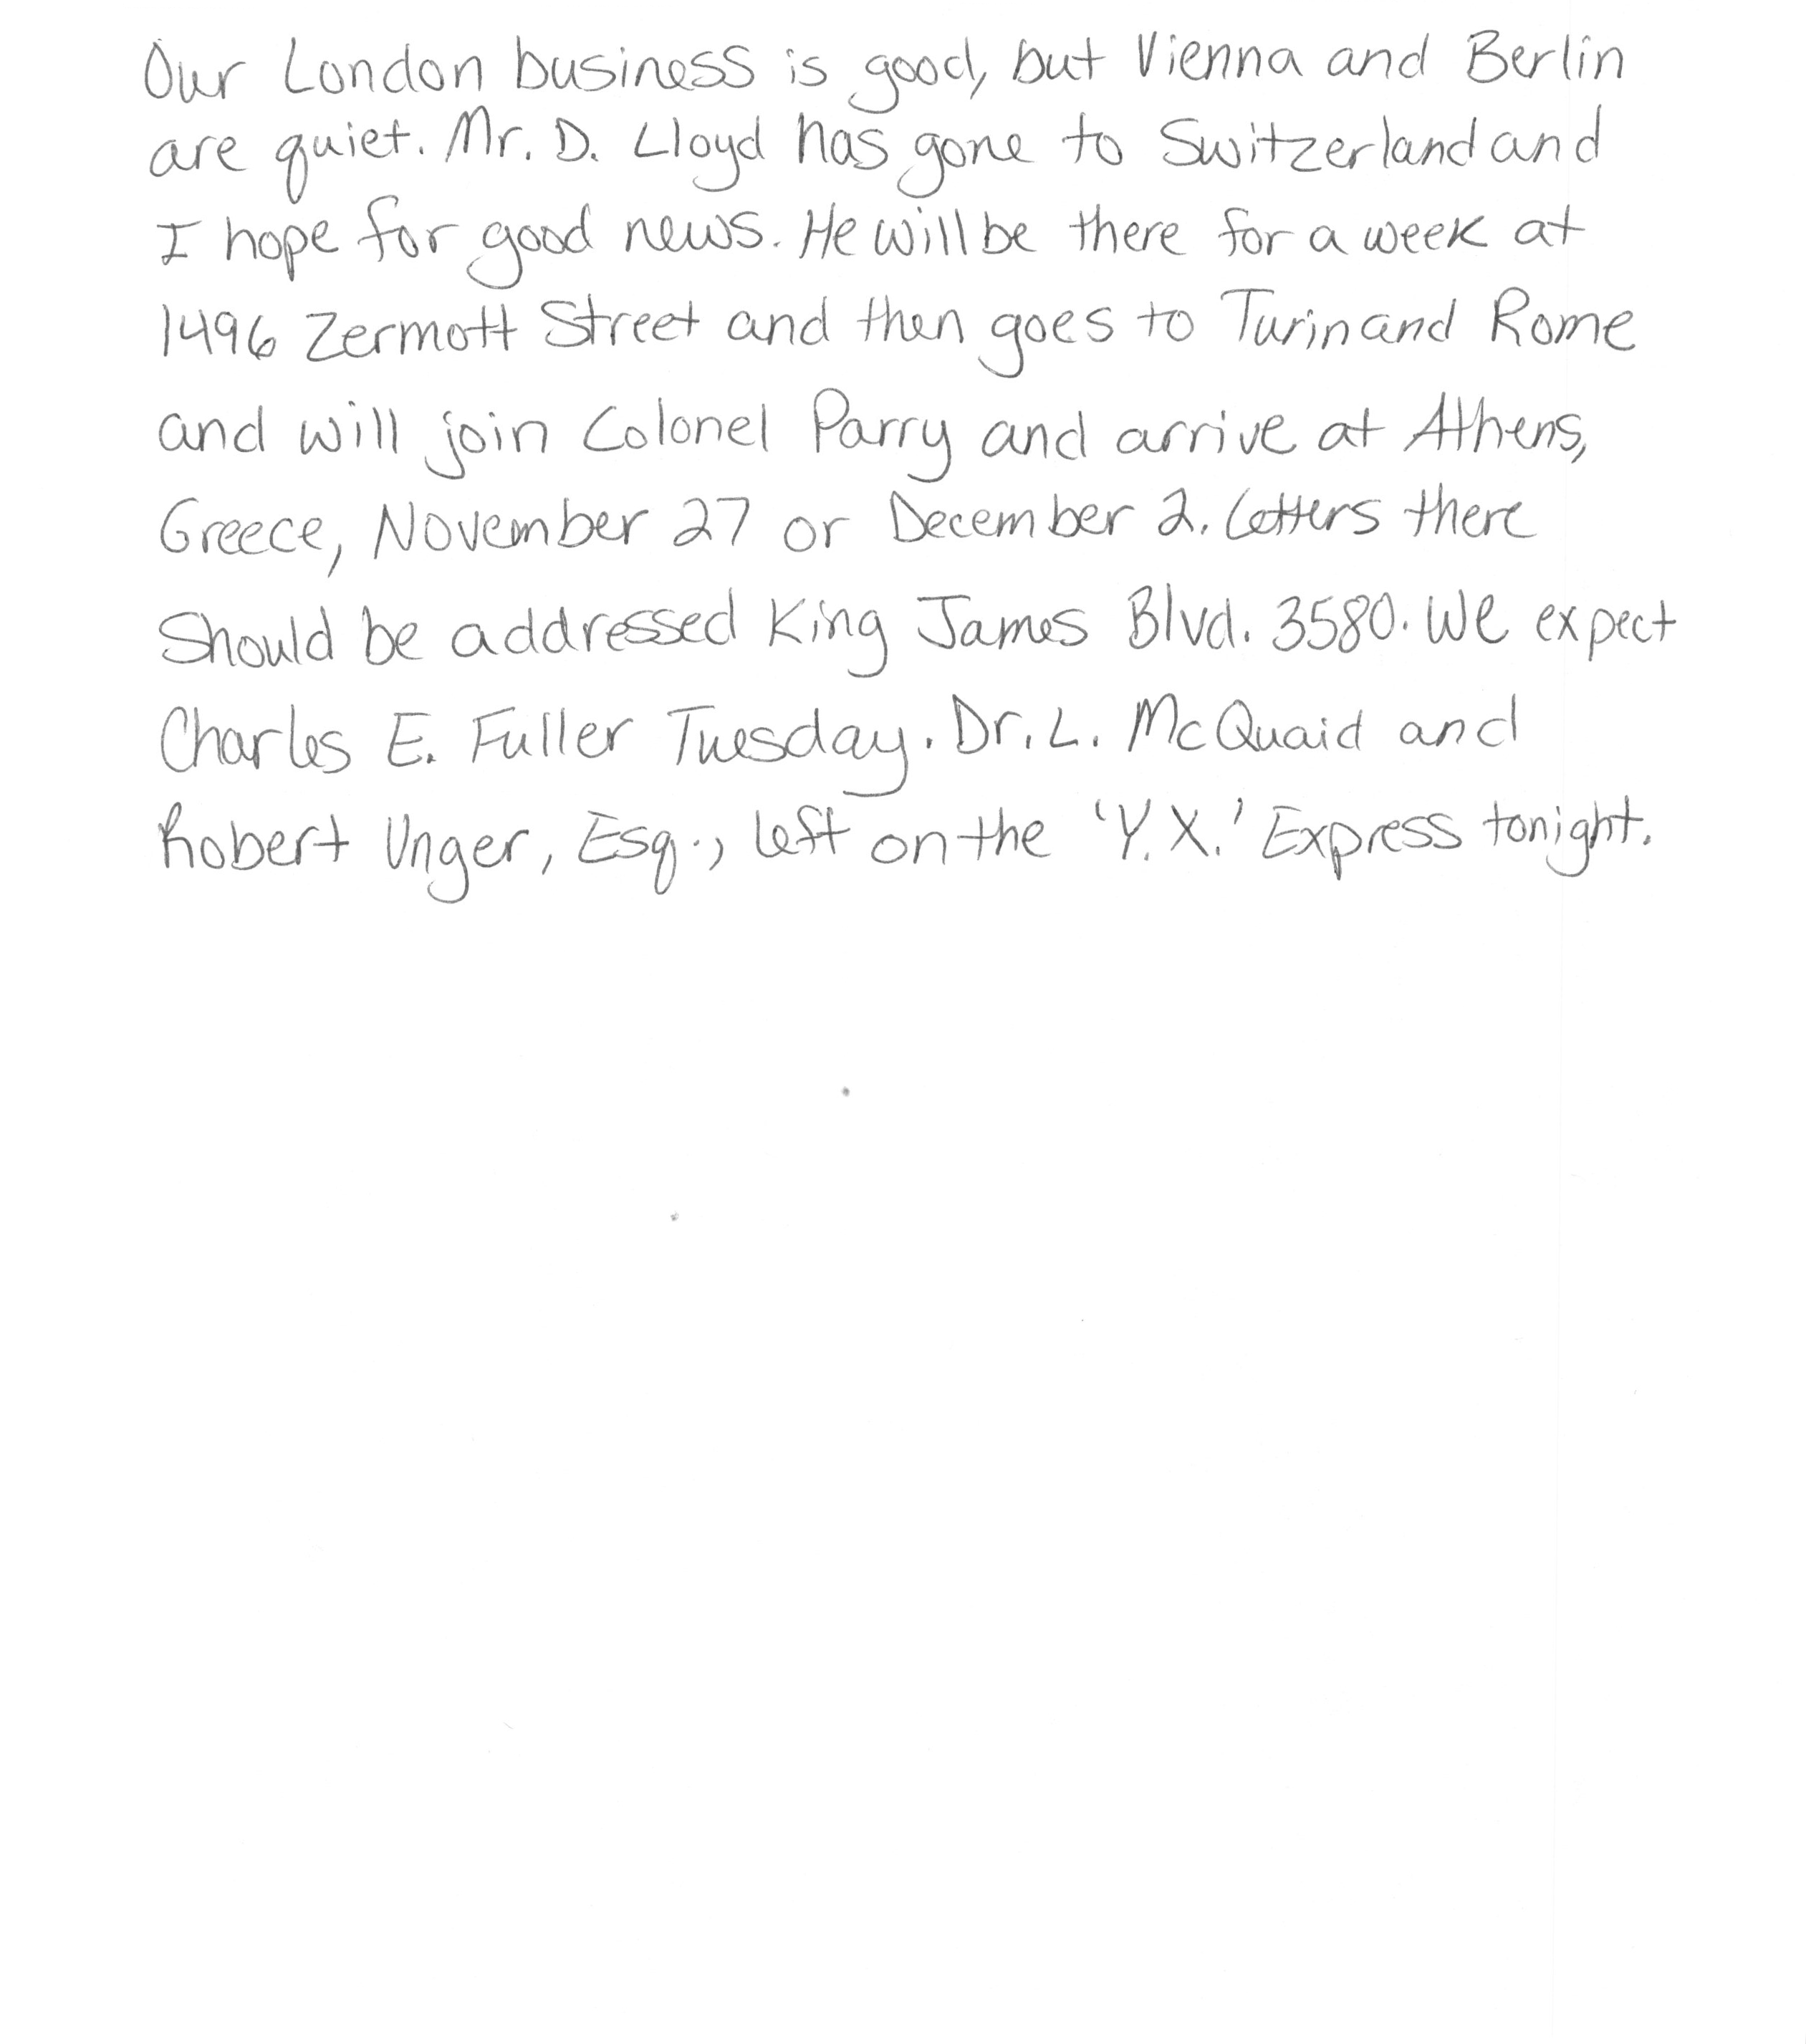 Our London business is good, but Vienna and Berlin
are quiet. Mr. D. Lloyd has gone to Switzerland and
I hope for good news. He will be there for a week at
1496 Zermott Street and then goes to Turin and Rome
and will join Colonel Parry and arrive at Athens,
Greece, November 27 or December 2. Letters there
Should be addressed King James Blvd. 3580. We expect
Charles E. Fuller Tuesday. Dr. L. McQuaid and
Robert Unger, Esq., left on the 'Y.X.' Express tonight.